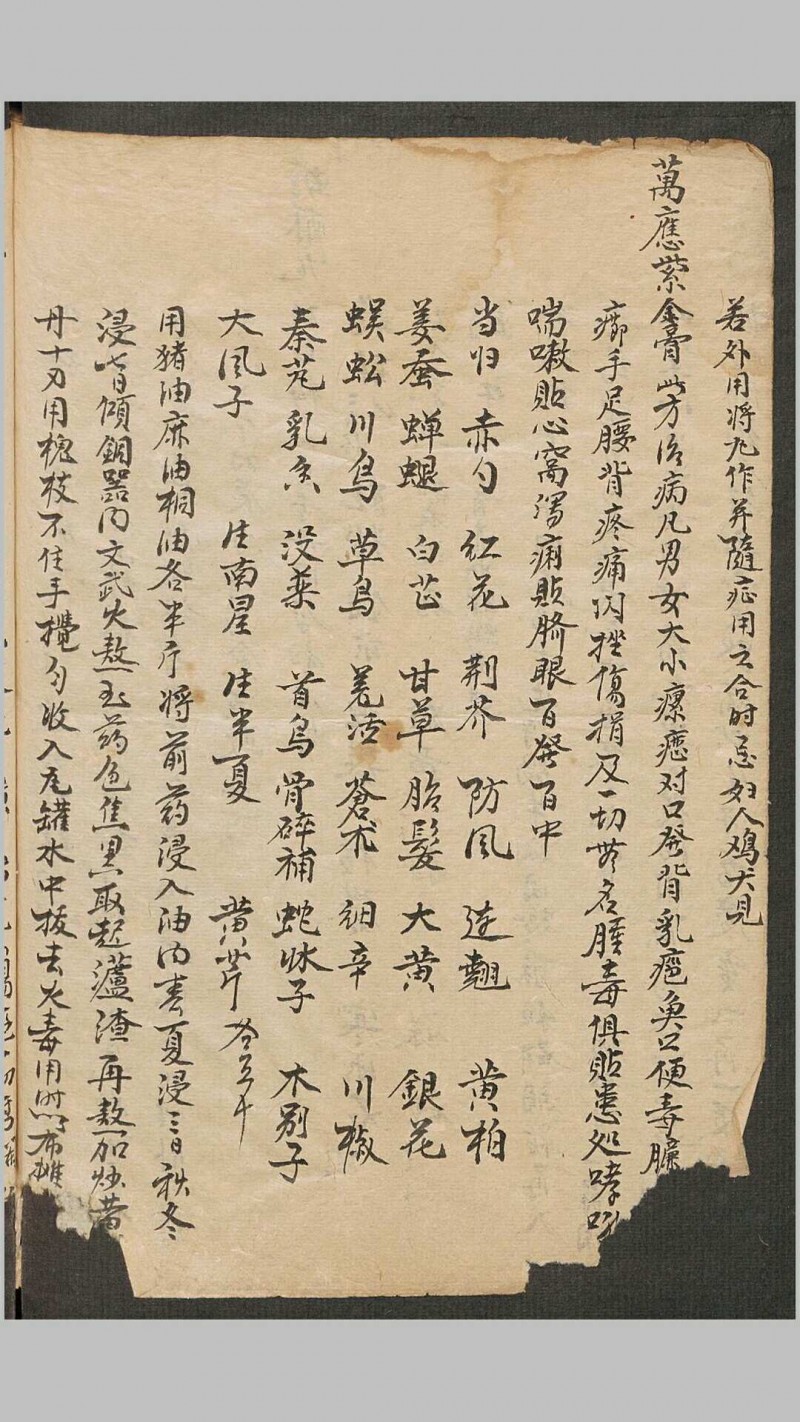 若外用将丸作并隨症用之合时忌妇人鸡犬見
萬應紫金膏此方治病凡男女大小瘰癧对口發背乳疤魚口便毒臁
瘡手足腰背疼痛闪挫傷損及一切無名腫毒俱貼患処哮吼
喘嗽貼心窩瀉痢貼臍眼百發百中
当归 赤勺 红花 荆芥 防风 连翘 黄柏
姜蚕 蝉蜕 白芷 甘草 胎髮 大黄 銀花
蜈蚣 川烏 草烏 羌活 蒼术 细辛 川椒
秦艽 乳香 没藥 首烏 骨碎補 蛇床子 木别子
大風子 生南星 生半夏 黄芩
用猪油麻油桐油各半斤将前药浸入油内春夏浸三日秋冬
浸七日傾銅器内文武火熬至药色焦黑取起瀘渣再熬加炒黄
丹十刃用槐枝不住手攪匀收入瓦罐水中拔去火毒用時布攤